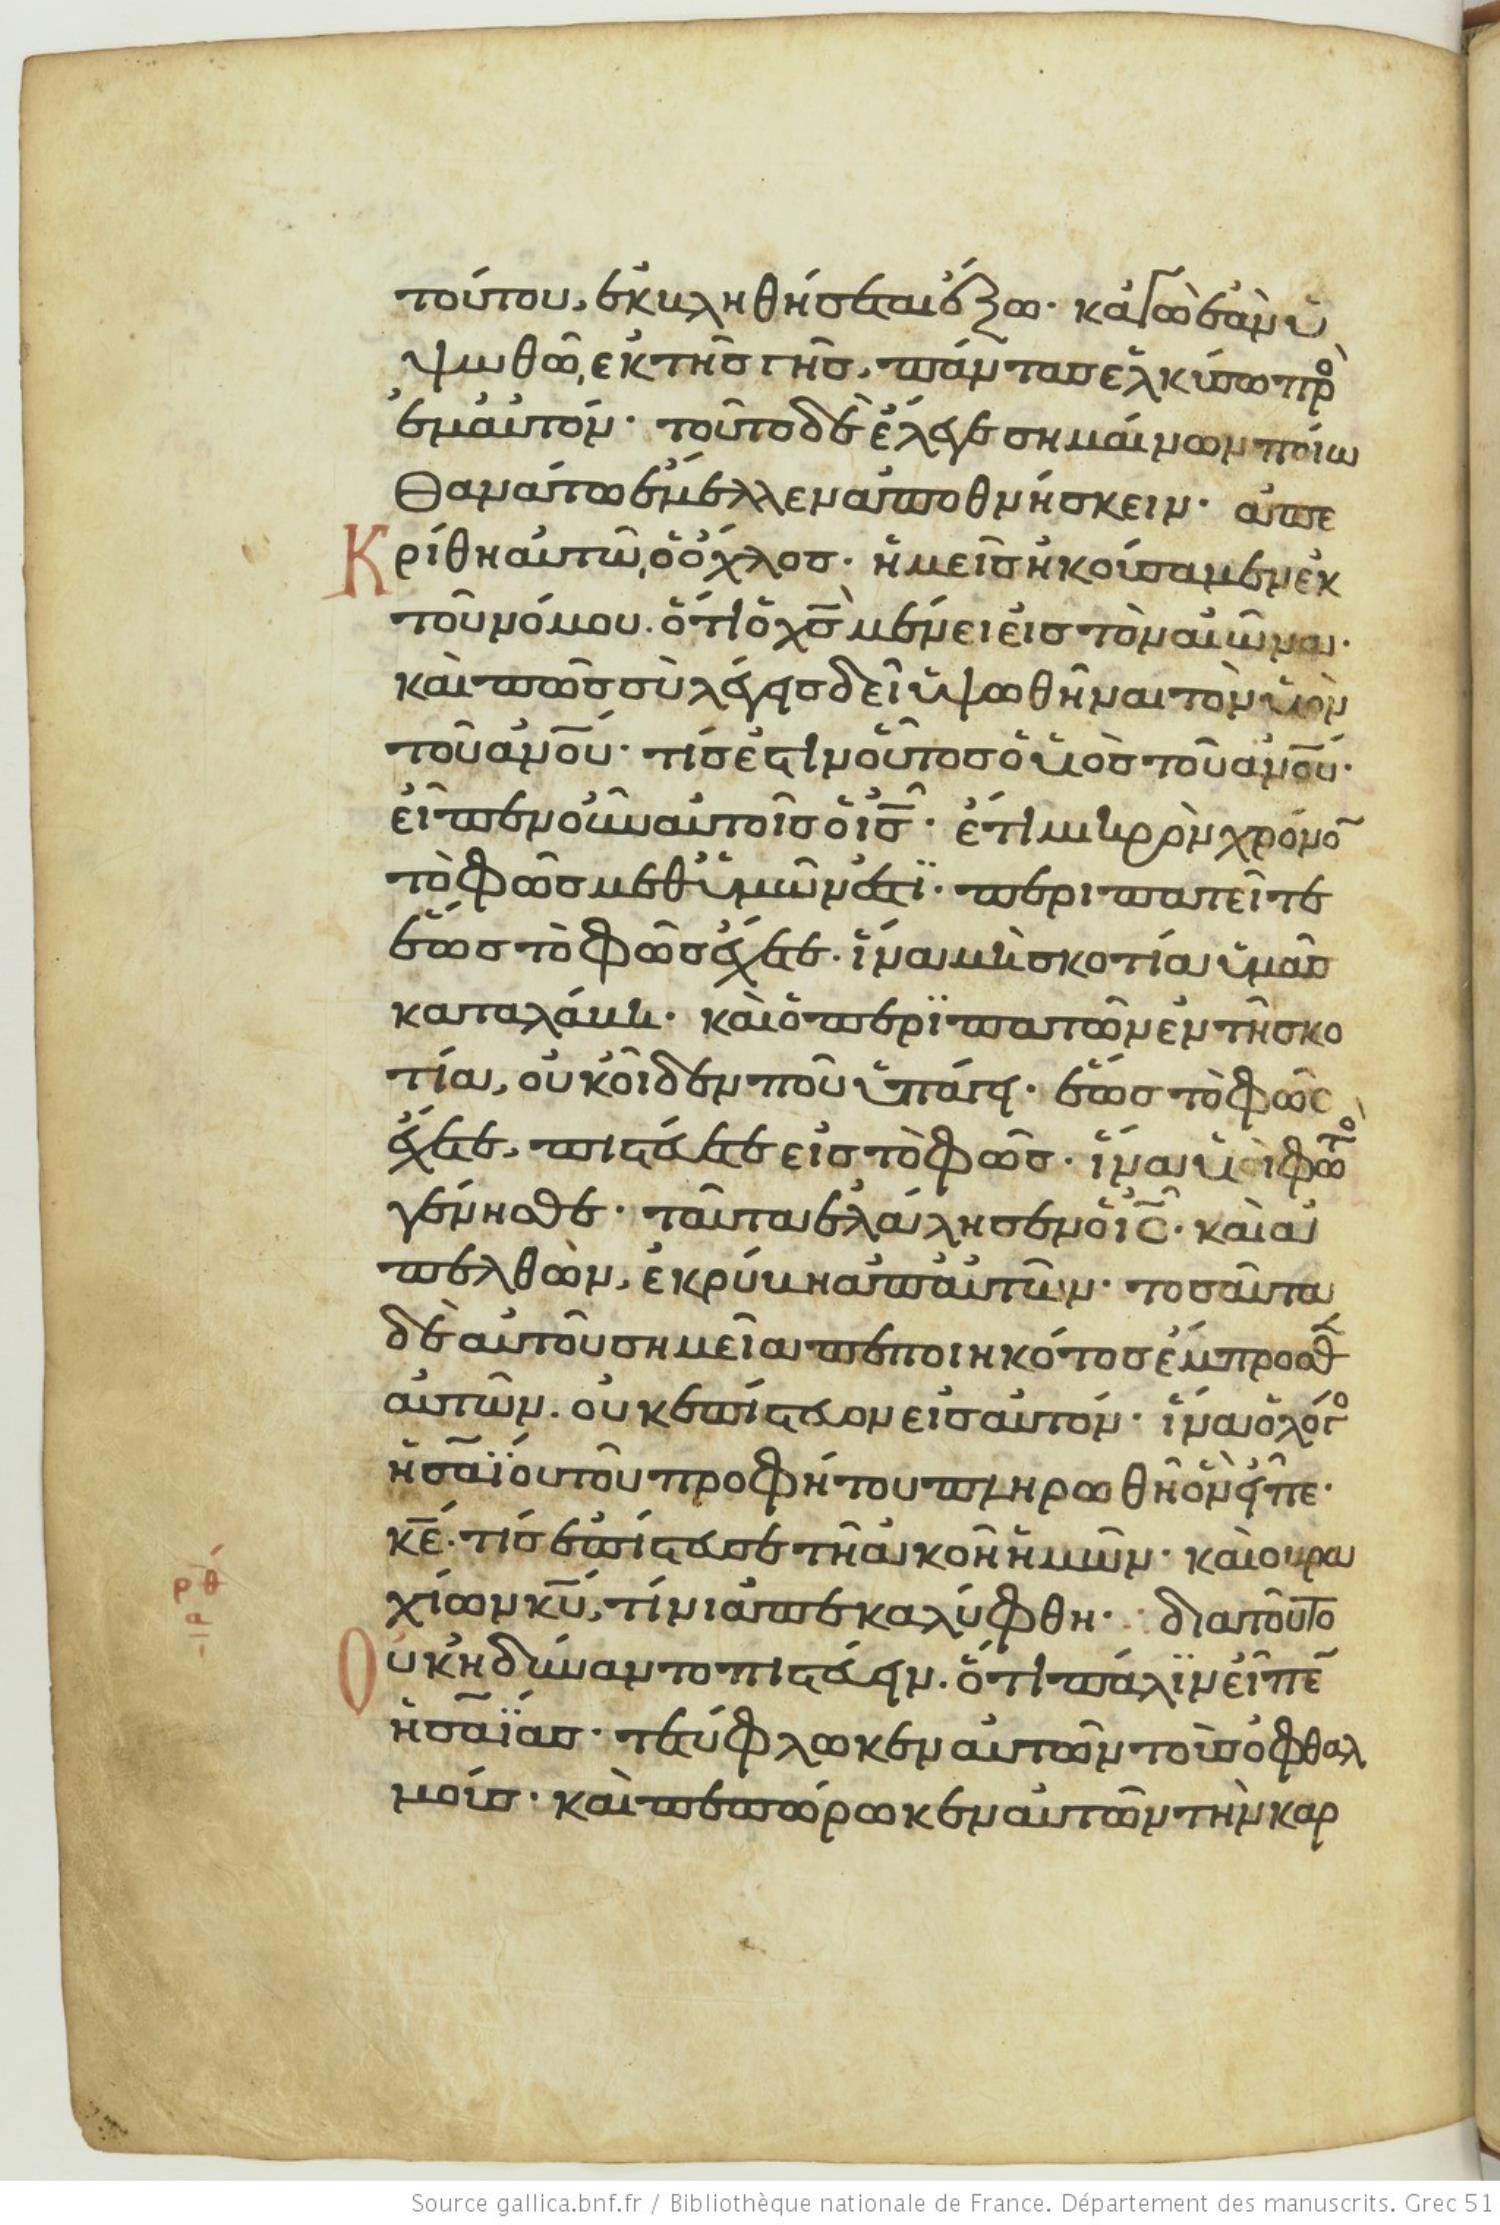 τούτου, ἐκβληθήσεται ἔξω· κἀγὼ ἐὰν ὑ
ψωθῶ, ἐκ τῆς γῆς, πάντας ἑλκύσω πρὸ
ἐμαυτόν· τοῦτο δὲ ἔλεγε σημαίνων ποίω
θανάτω ἔμελλεν ἀποθνήσκειν· ἀπε
Κρίθη αὐτῶ, ὁ ὄχλος· ἡμεῖς ἠκούσαμεν ἐκ
τοῦ νόμου. ὅτι ὁ χς μένει εἰς τὸν αἰῶνα·
καὶ πῶς σὺ λέγεις δεῖ ὑψωθῆναι τὸν υἱὸν
τοῦ ανου· τίς ἐστιν οὗτος ὁ υἱὸς τοῦ ανου·
εἶπεν οὖν αὐτοῖς ὁ ις· ἔτι μικρὸν χρόνο
τὸ φῶς μεθ' ὑμῶν ἐστϊ· περιπατεῖτε
ἕως τὸ φῶς ἔχετε· ἵνα μὴ σκοτία ὑμᾶς
καταλάβη· καὶ ὁ περϊπατῶν ἐν τῆ σκο
τία, οὐκ οἶδεν ποῦ ὑπάγει· ἕως τὸ φῶς
ἔχετε, πιστεύετε εἰς τὸ φῶς· ἵνα υἱοὶ φωτὸ
γένησθε· ταῦτα ἐλάλησεν ὁ ις· καὶ ἀ
πελθὼν, ἐκρύβη ἀπ' αὐτῶν· τοσαῦτα
δὲ αὐτοῦ σημεῖα πεποιηκότος ἔμπροσθ
αὐτῶν. οὐκ ἐπίστευον εἰς αὐτόν· ἵνα ὁ λόγο
ἡσαΐου τοῦ προφήτου πληρωθῆ ὃν εἶπε·
κε· τίς ἐπίστευσε τῆ ἀκοῆ ἡμῶν· καὶ ὁ βρα
χίων κυ, τίνι ἀπεκαλύφθη· διατοῦτο
Οὐκ ἠδύναντο πιστεύειν. ὅτι πάλϊν εἶπε
ἡσαΐας· τετύφλωκεν αὐτῶν τοὺς ὀφθαλ
μούς· καὶ πεπώρωκεν αὐτῶν τὴν καρ
ρθ
α
Source gallica.bnf.fr / Bibliothèque nationale de France. Département des manuscrits. Grec 51